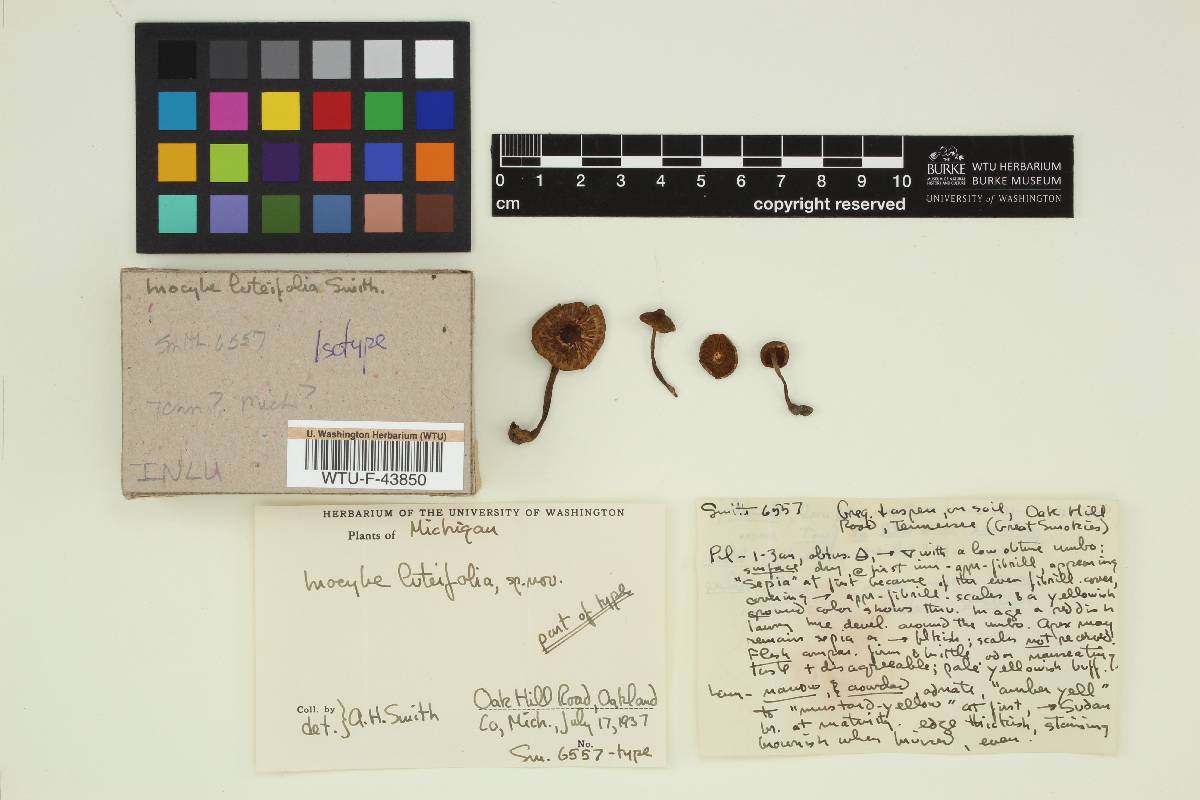 0 1 2 3 4 5 6 7 8 9 10
cm
copyright reserved
THE
BURKE
MUSEUM OF NATURAL
HISTORY AND CULTURE
WTU HERBARIUM
BURKE MUSEUM
UNIVERSITY of WASHINGTON
Inocybe luteifolia Smith.
Smith 6557
Isotype
Tenn?, Mich?
INLU
U. Washington Herbarium (WTU)
WTU-F-43850
HERBARIUM OF THE UNIVERSITY OF WASHINGTON
Plants of Michigan
Inocybe luteifolia, sp. nov.
part of type
Coll. by
det. } A.H. Smith
Oak Hill Road, Oakland
Co, Mich., July 17, 1937
No.
Sm. 6557-type
Smith 6557 Greg. + aspen, on soil, Oak Hill
Road, Tennessee (Great Smokies)
Pil - 1-3 cm, obtus. Δ, → ▽ with a low obtuse umbo;
surface dry @ first inn-appr-fibrill, appearing
"Sepia" at first because of the even fibrill. cover,
covering → appr-fibrill-scales, & a yellowish
ground color shows thru. In age a reddish
tawny hue devel. around the umbo. Apex may
remain sepia or → blkish; scales not recurved.
Flesh compar. firm & brittle, odor nauseating
taste + disagreeable; pale yellowish buff.
Lam- narrow, & crowded, adnate, "amber yell"
to "mustard-yellow" at first, → Sudan
br. at maturity. edge thickish, staining
brownish when bruised, even.